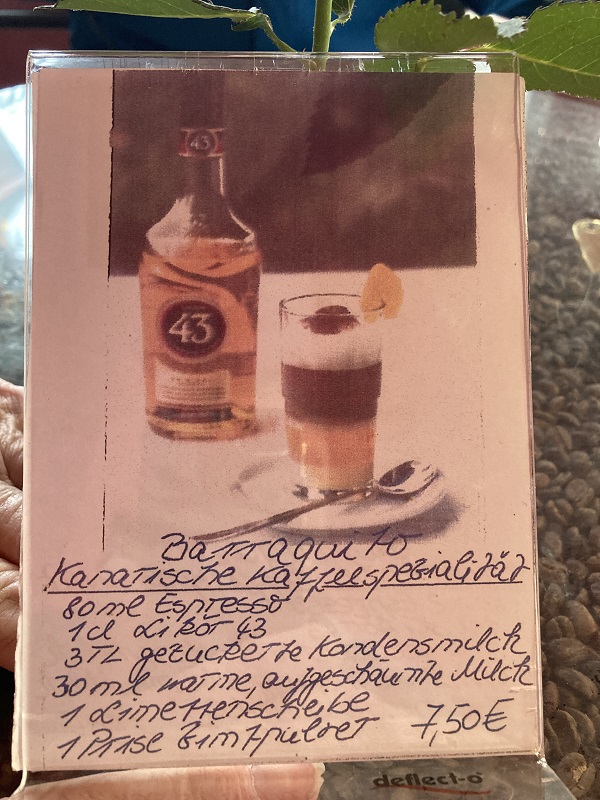 43
43
Barraquito
Kanarische Kaffeespezialität
80ml Espresso
1cl Likör 43
3TL gezuckerte Kondensmilch
30ml warme, aufgeschäumte Milch
1 Limettenscheibe
1 Prise Zimtpulver 7,50€
deflect-o